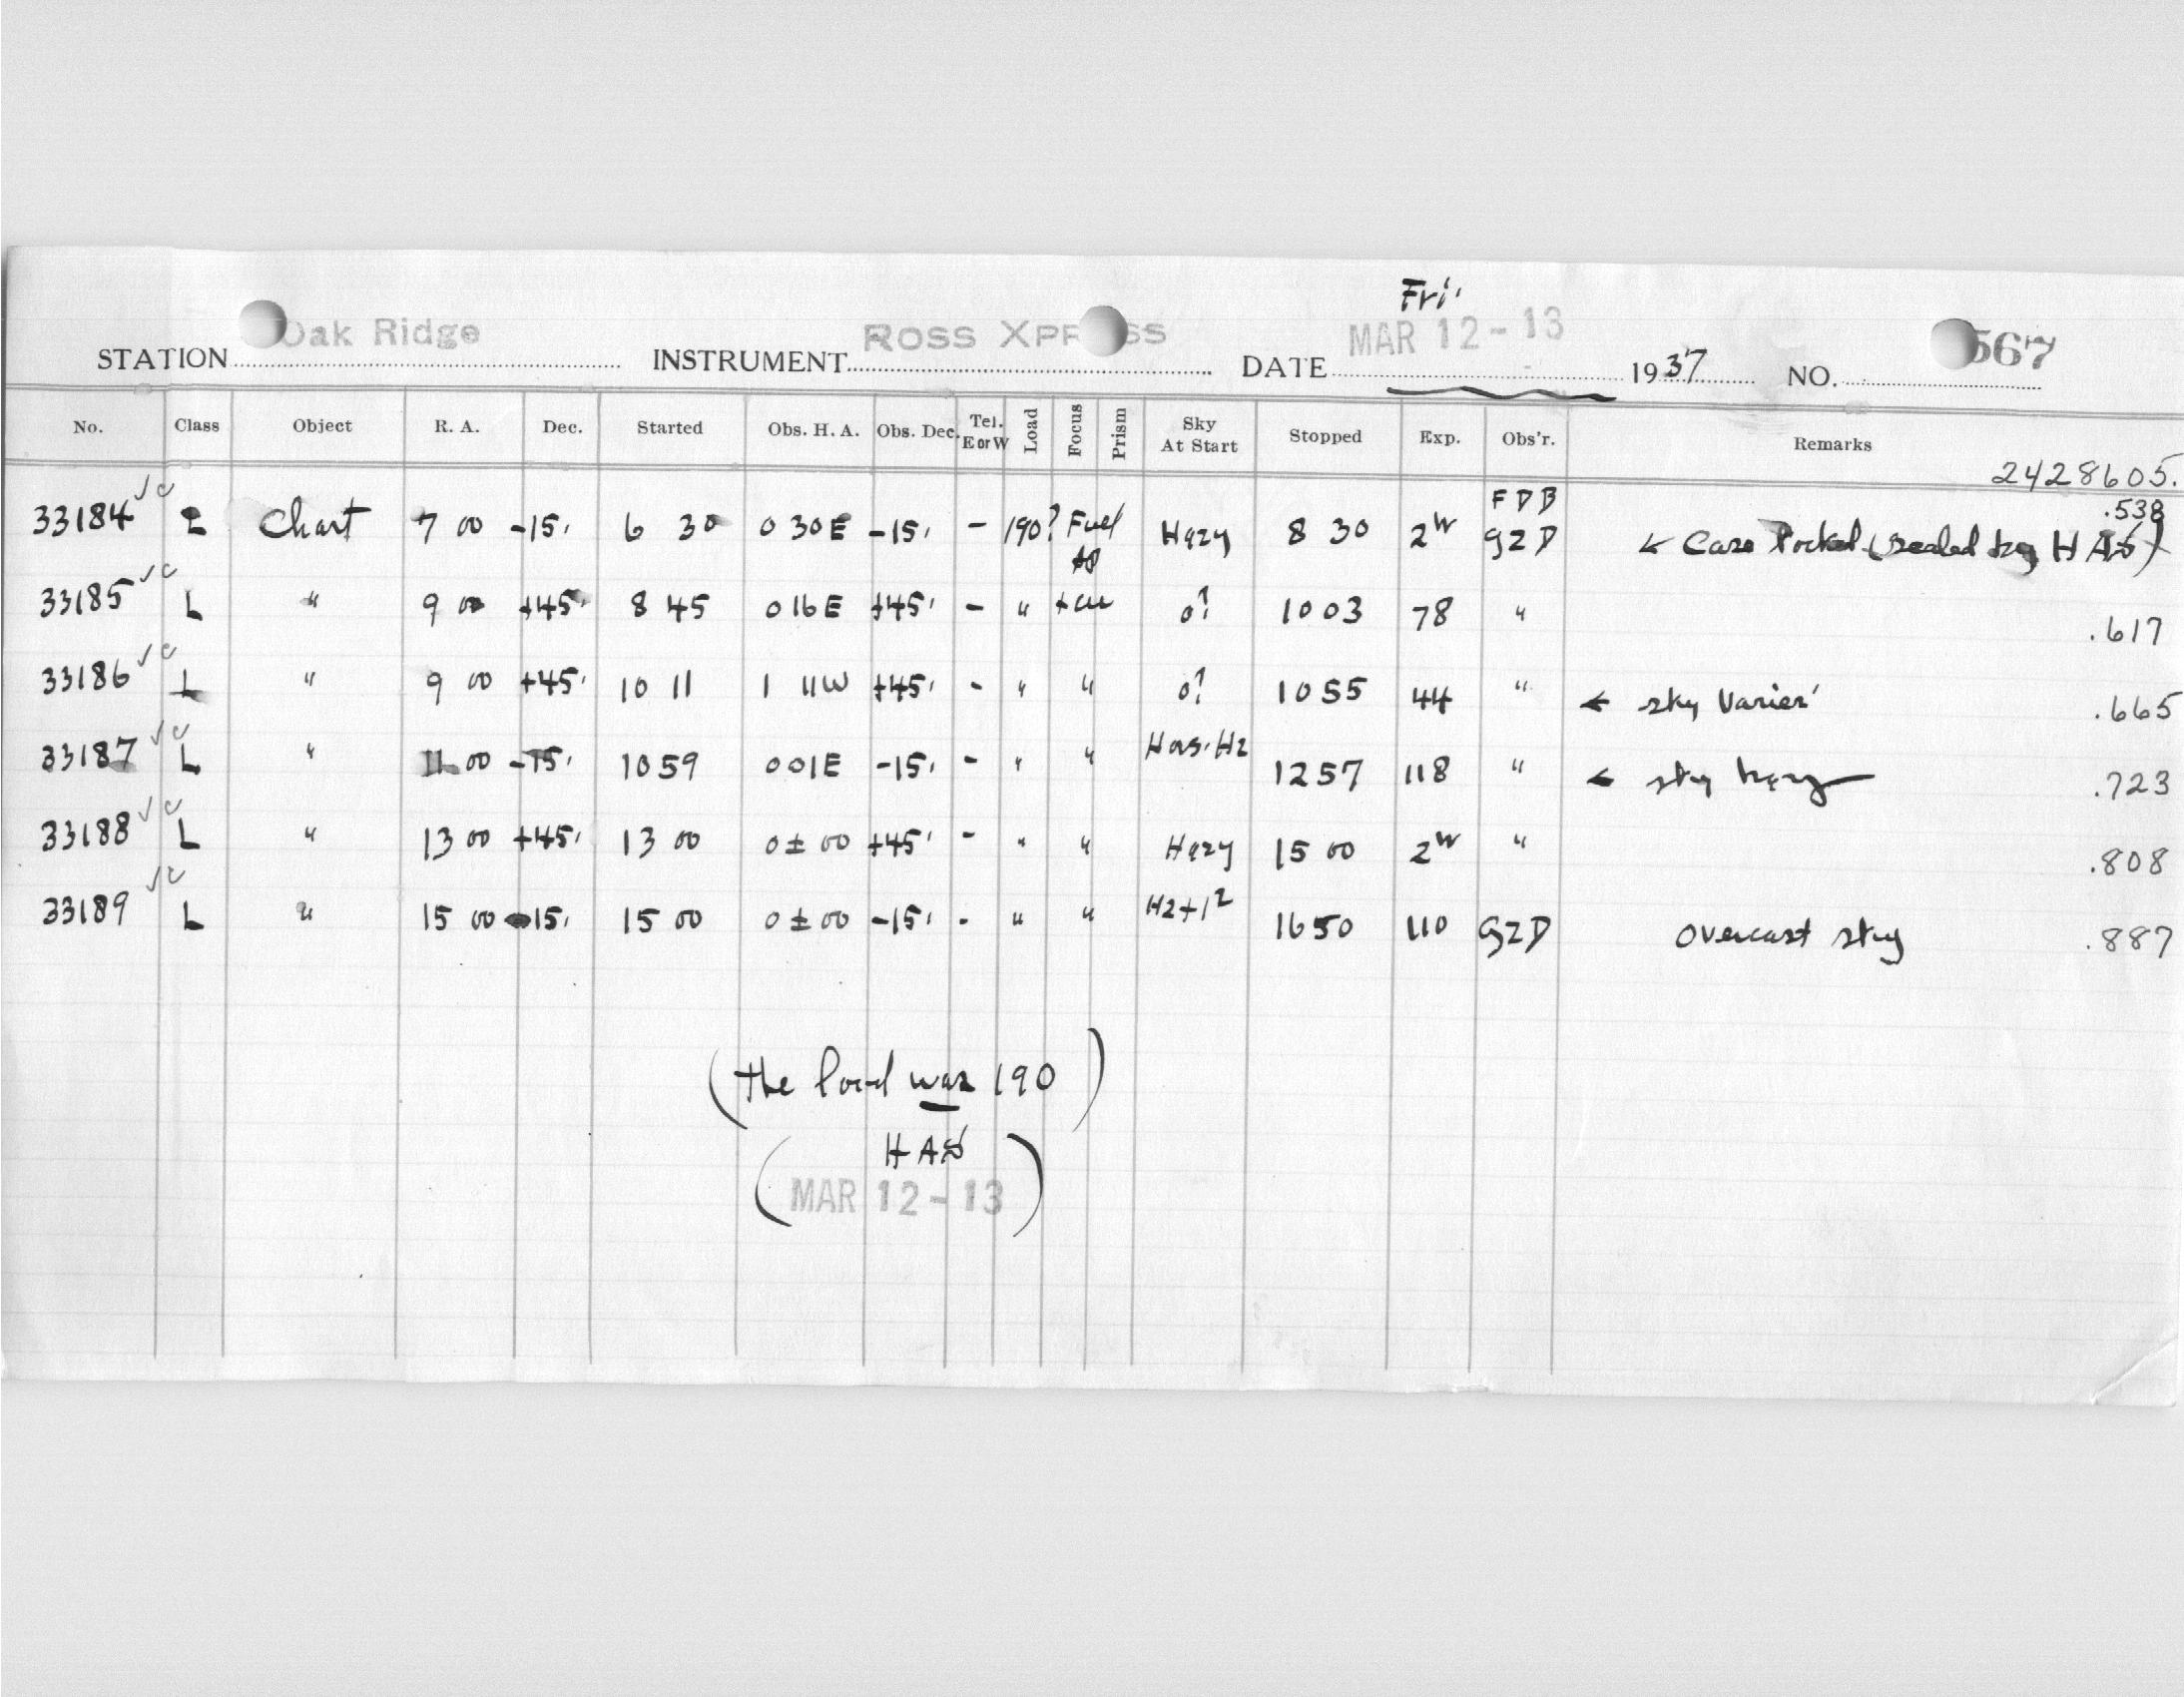 Fri.
STATION Oak Ridge INSTRUMENT ROSS XPRESS DATE MAR 12-13 1937 NO. 567
No. Class Object R. A. Dec. Started Obs. H. A. Obs. Dec. Tel. E or W Load Focus Prism Sky At Start Stopped Exp. Obs'r. Remarks
2428605.
33184 L Chart 7 00 -15. 6 30 0 30E -15. - 190? Hazy 8 30 2 FDB GZD ← Case (sealed by HAS) .538
33185 L " 9 00 +45. 8 45 0 16E +45. - " 0? 10 03 78 " .617
33186 L " 9 00 +45. 10 11 1 11W +45. - " " 0? 10 55 44 " ← sky varies .665
33187 L " 11 00 -15. 10 59 0 01E -15. - " " Hz 12 57 118 " ← sky hazy .723
33188 L " 13 00 +45. 13 00 0 ± 00 +45. - " " Hazy 15 00 2 " .808
33189 L " 15 00 -15. 15 00 0 ± 00 -15. - " " Hz+1² 16 50 110 GZD overcast sky .887
(the load was 190)
(HAS
MAR 12-13)